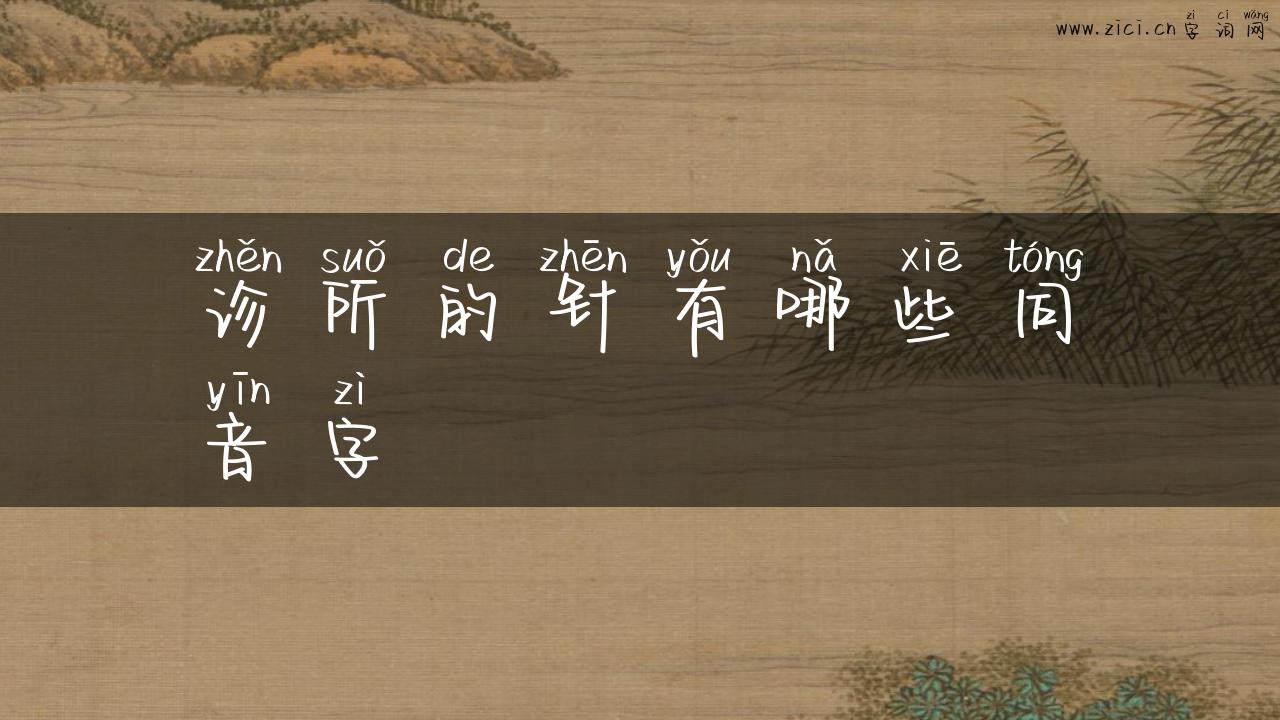 zì cí wǎng
www.zici.cn字词网
zhěn suǒ de zhēn yǒu nǎ xiē tóng
诊所的针有哪些同
yīn zì
音字